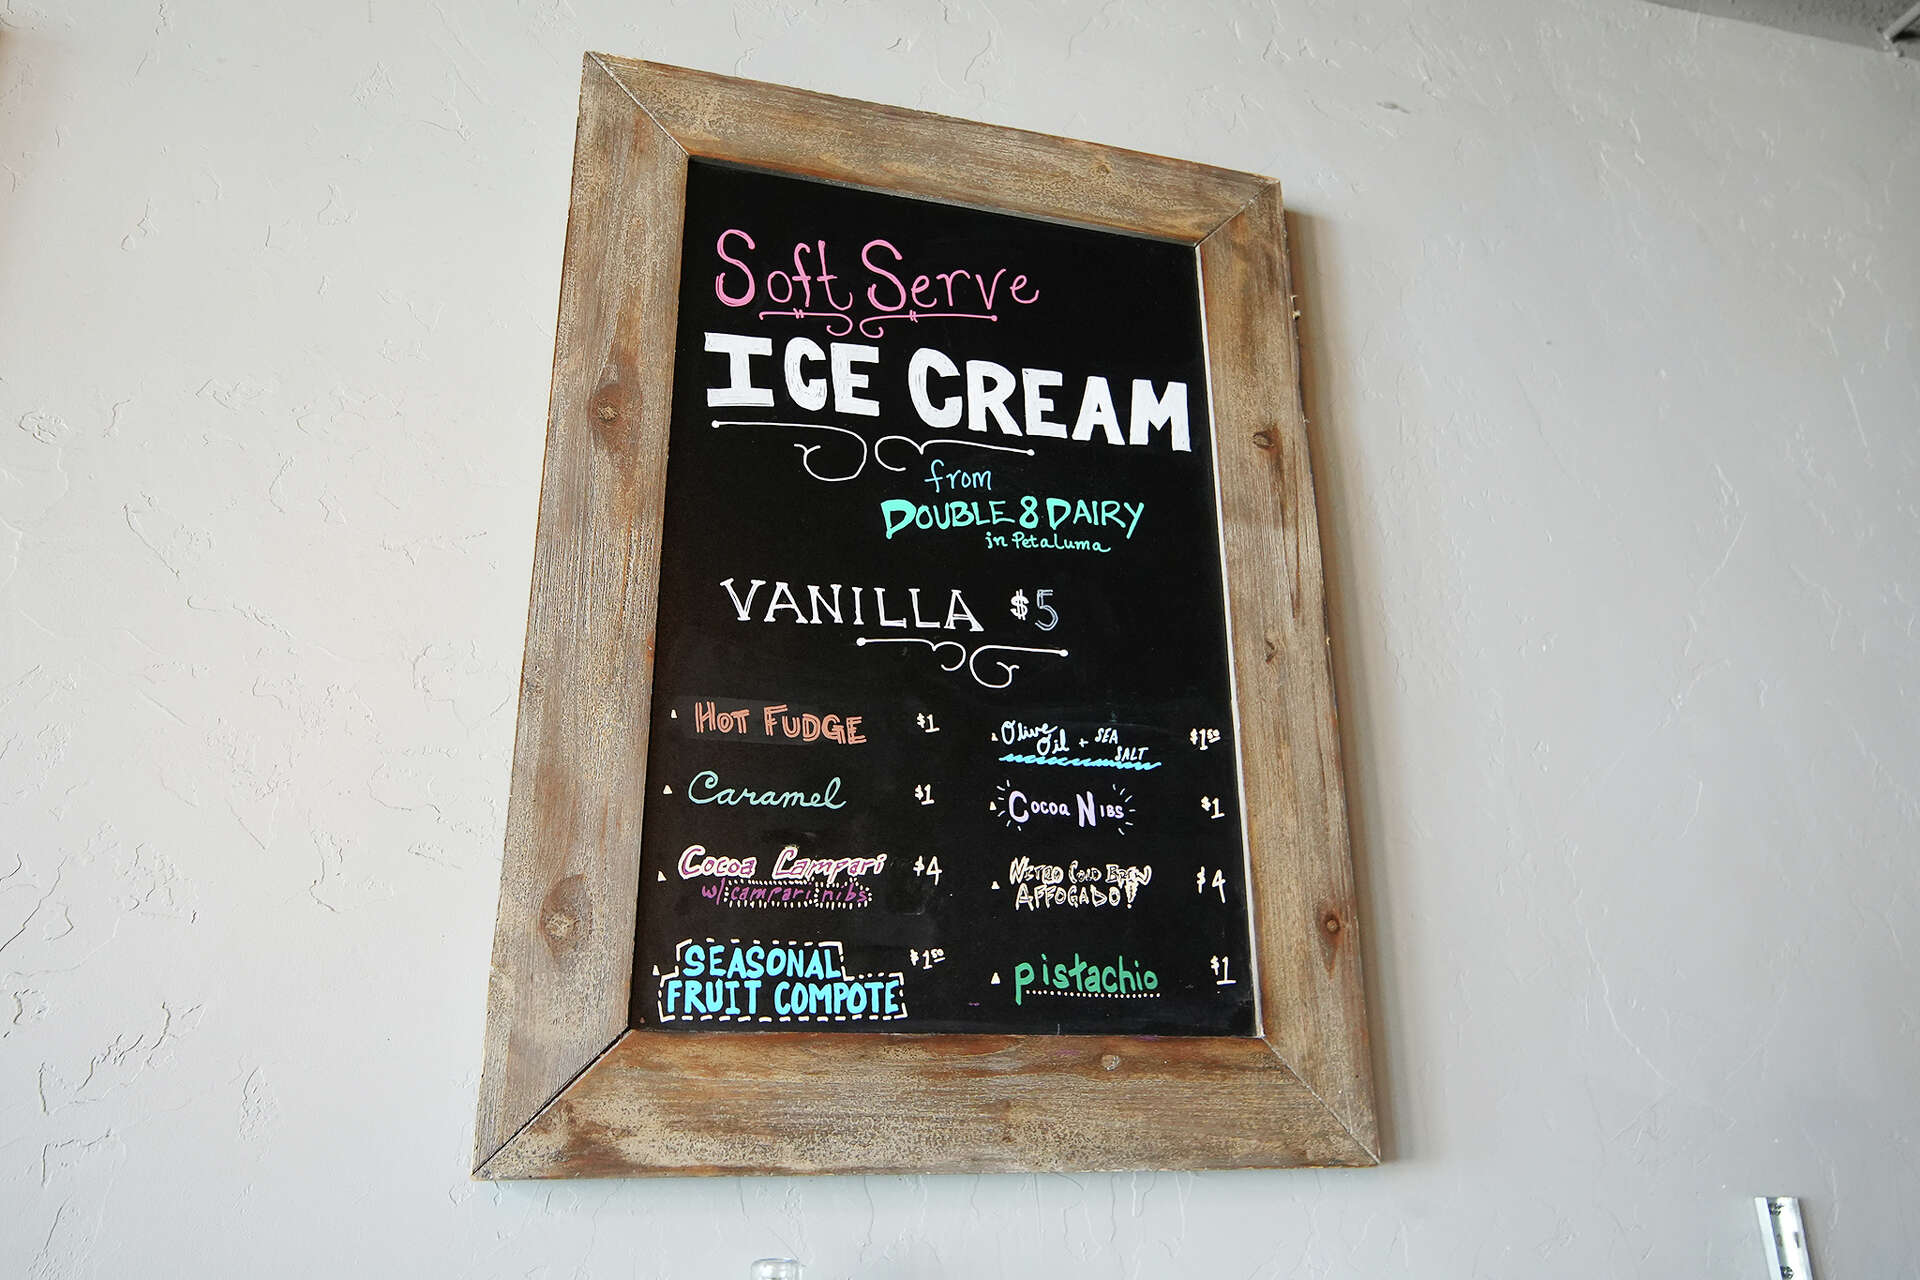 Soft Serve
ICE CREAM
from
DOUBLE 8 DAIRY
in Petaluma
VANILLA $5
HOT FUDGE $1
Caramel $1
Cocoa Campari $4
w/ campari nibs
SEASONAL $1.50
FRUIT COMPOTE
Olive
Oil + SEA
SALT $1.50
Cocoa Nibs $1
NITRO COLD BREW
AFFOGADO! $4
pistachio $1